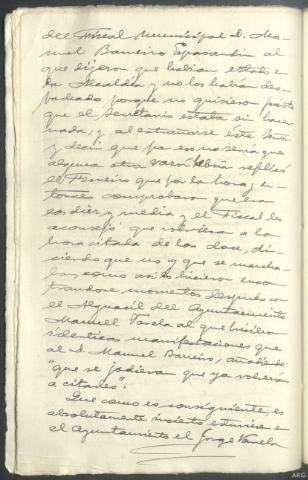 del Fiscal Municipal D. Ma-
nuel Barreiro Espasandin al
que dijeron que habian estado en
la Alcaldia y no los habian des-
pachado porque no quisieron puesto
que el Secretario estaba sin hacer
nada, y al extrañarse este Señor
y decir que por eso no seria que
alguna otra razón habria replicó
el Ferreiro que por la hora, en-
tonces comprobaron que eran
las diez y media y el Fiscal les
aconsejó que volvieran a la
hora citada de las doce, di-
ciendo que no y que se marcha-
ban como asi lo hicieron encon-
trandose momentos después con
el Alguacil del Ayuntamiento
Manuel Varela al que hicieron
identicas manifestaciones que
al D. Manuel Barreiro, añadiendo
"que se jodieran que ya volverian
a citarles".
Que como es consiguiente, es
absolutamente incierto estuviera en
el Ayuntamiento el Jorge Varela
ARG